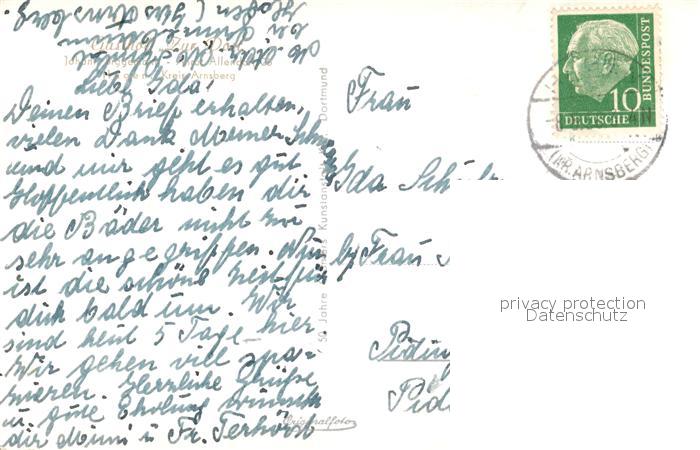 Gasthof "Zur Post"
Kreis Arnsberg
Liebe Ida!
Deinen Brief erhalten,
vielen Dank Meiner Schw.
und mir geht es gut
Hoffentlich haben dir
die Bäder nicht zu
sehr angegriffen. Nun
ist die schöne Zeit für
dich bald um. Wir
sind heut 5 Tage hier
Wir gehen viel spa-
zieren. Herzliche Grüße
u. gute Erholung wünscht
dir Mimi u Fr. Terhörst
50 Jahre
Kunstanstalt
Dortmund
Originalfoto
Frau
Ida
b/ Frau
BUNDESPOST
10
DEUTSCHE
(KR. ARNSBERG)
privacy protection
Datenschutz